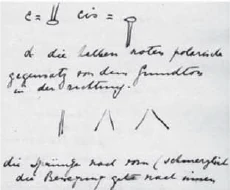 c = cis =
d. die halben noten polarische
gegensatz von dem Grundton
in der richtung.
die Sprünge nach vorn (schmerzlich
die Bewegung geht nach innen